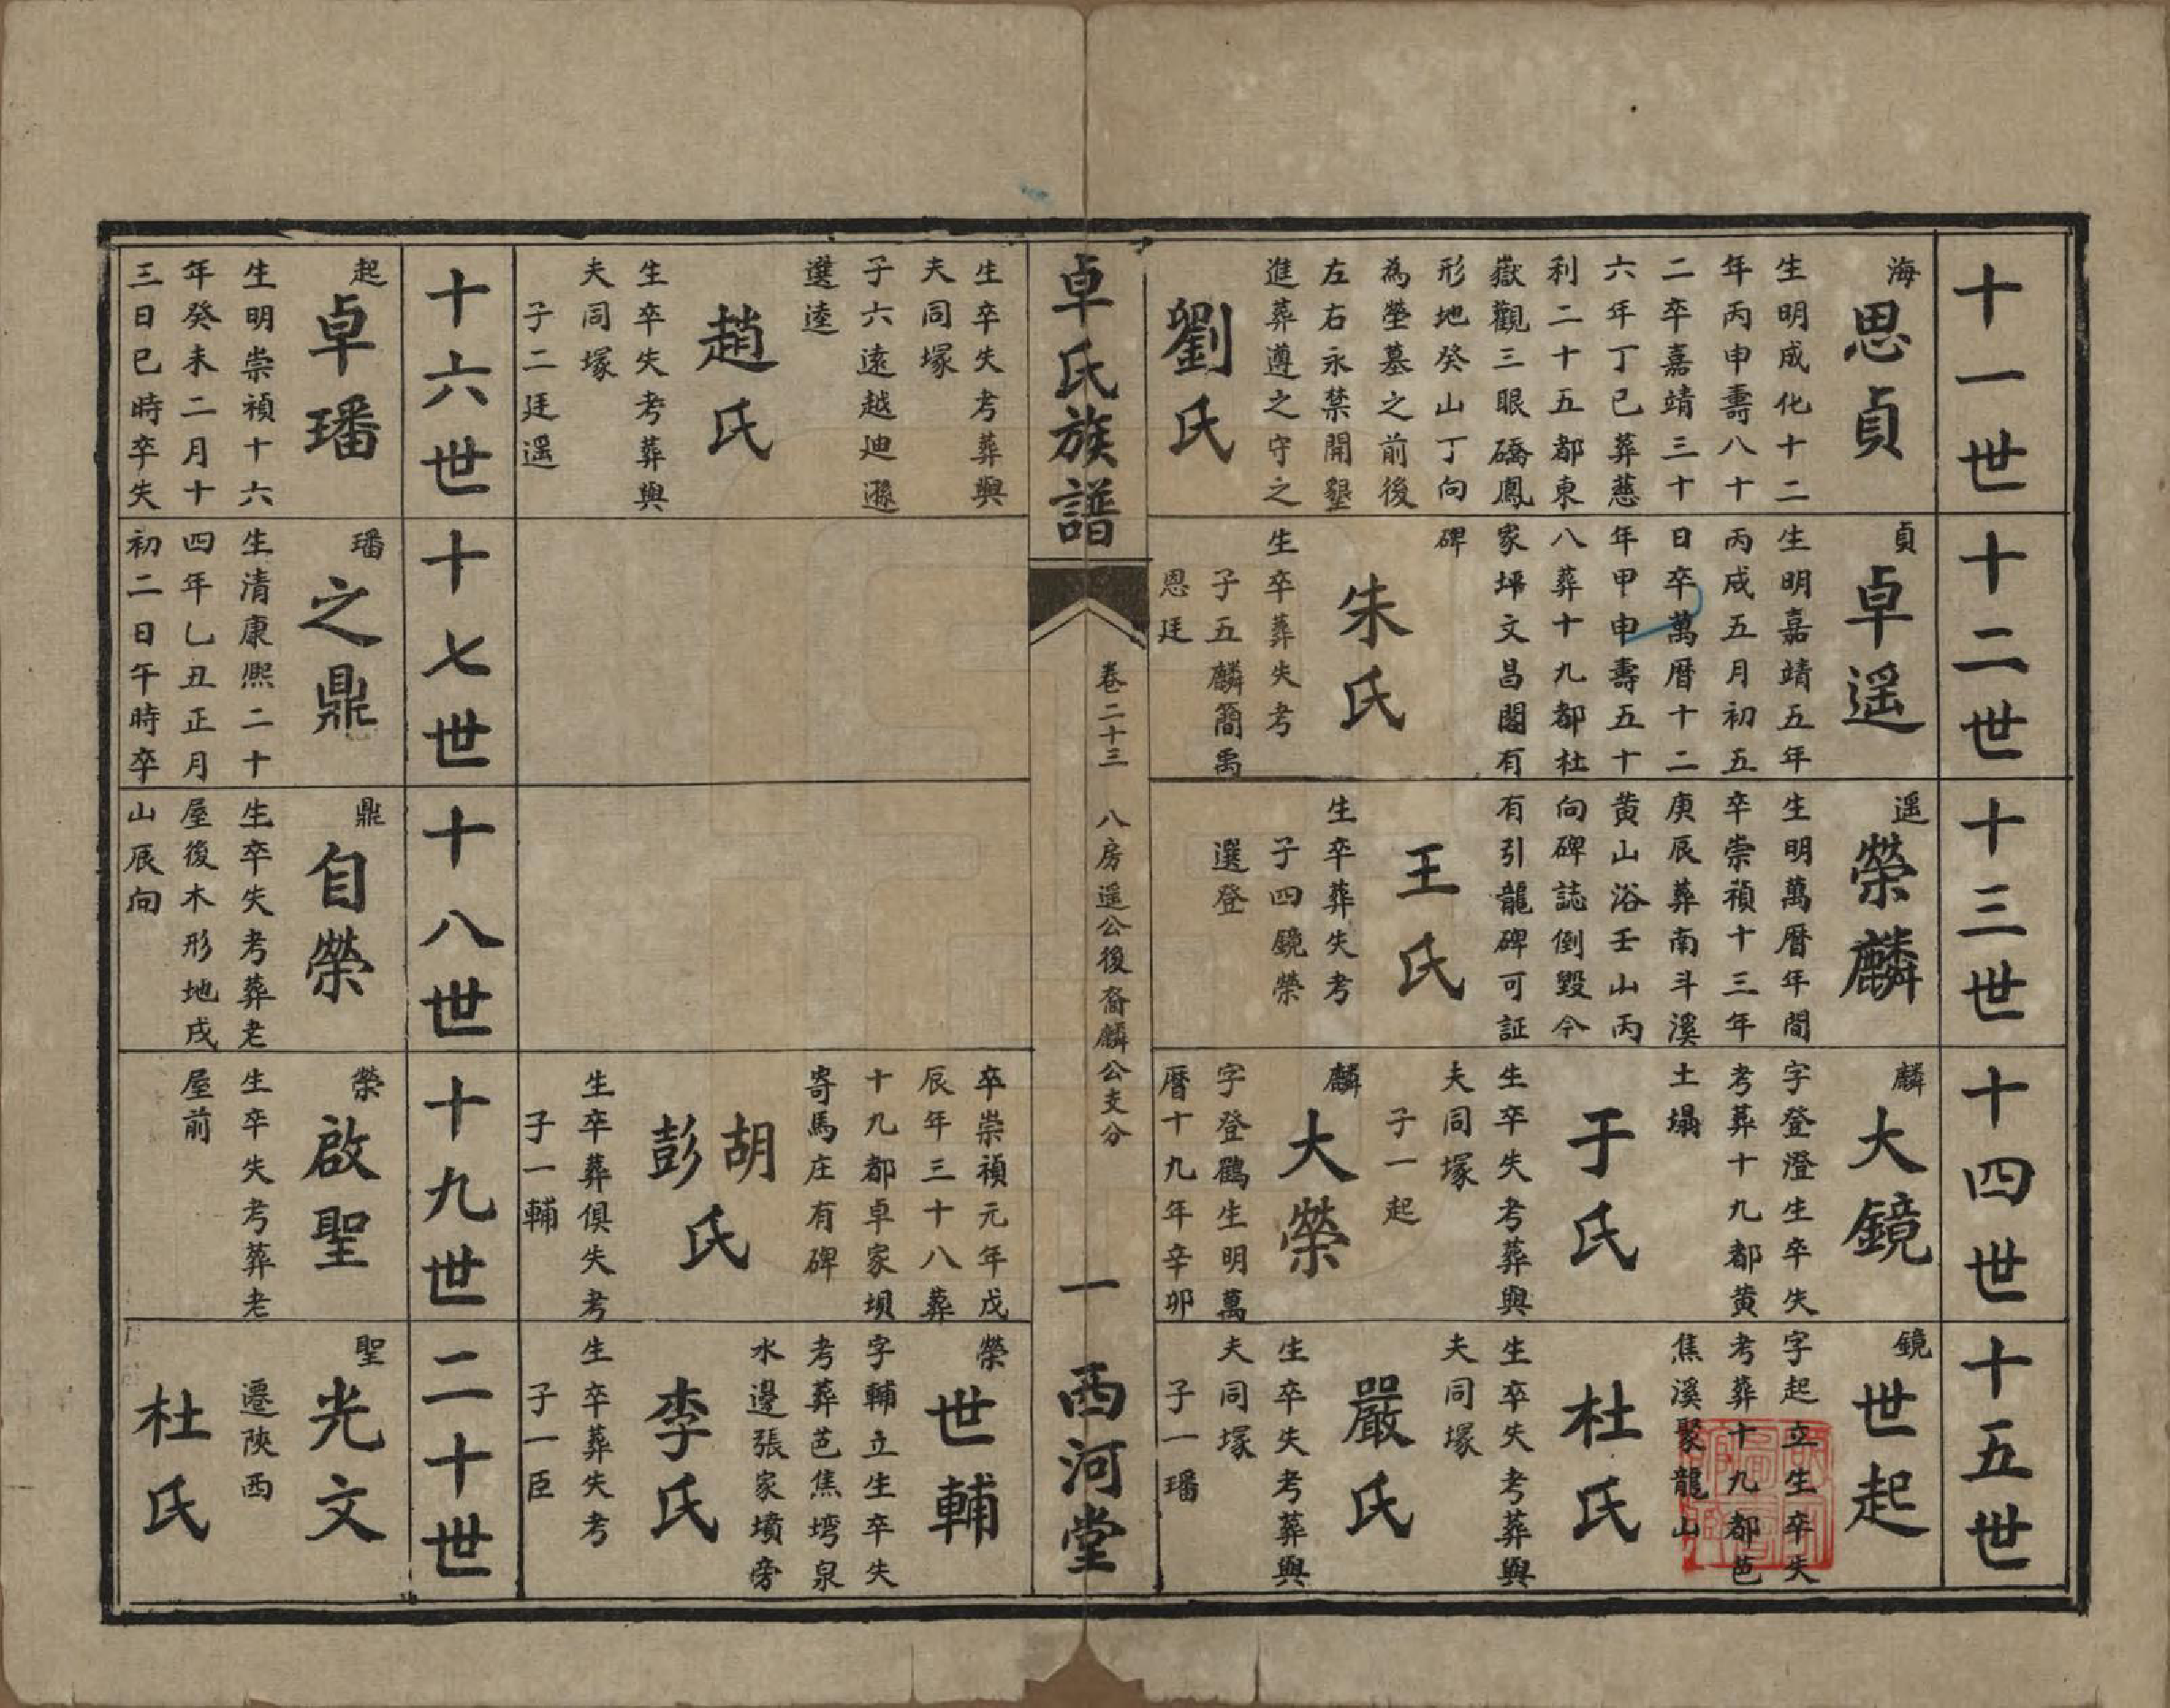 十一世
海
思貞
生明成化十二
年丙申壽八十
二卒嘉靖三十
六年丁巳葬慈
利二十五都東
嶽觀三眼礄鳳
形地癸山丁向
為塋墓之前後
左右永禁開墾
進葬遵之守之
劉氏
生卒失考葬與
夫同塚
子六遠越迪遜
選逵
趙氏
生卒失考葬與
夫同塚
子二廷遥
十二世
貞
卓遥
生明嘉靖五年
丙戌五月初五
日卒萬曆十二
年甲申壽五十
八葬十九都杜
家坪文昌閣有
碑
朱氏
生卒葬失考
子五麟簡禹
恩廷
十三世
遥
榮麟
生明萬曆年間
卒崇禎十三年
庚辰葬南斗溪
黄山浴壬山丙
向碑誌倒毀今
有引龍碑可証
王氏
生卒葬失考
子四鏡榮
選登
十四世
麟
大鏡
字登澄生卒失
考葬十九都黄
土塌
于氏
生卒失考葬與
夫同塚
子一起
麟
大榮
字登鶴生明萬
曆十九年辛卯
卒崇禎元年戊
辰年三十八葬
十九都卓家垻
寄馬庄有碑
胡彭氏
生卒葬俱失考
子一輔
十五世
鏡
世起
字起立生卒失
考葬十九都芭
焦溪聚龍山
杜氏
生卒失考葬與
夫同塚
嚴氏
生卒失考葬與
夫同塚
子一璠
榮
世輔
字輔立生卒失
考葬芭焦塆泉
水邊張家墳旁
李氏
生卒葬失考
子一臣
卓氏族譜
卷二十三
八房遥公後裔麟公支分
一
西河堂
十六世
起
卓璠
生明崇禎十六
年癸未二月十
三日巳時卒失
十七世
璠
之鼎
生清康熙二十
四年乙丑正月
初二日午時卒
十八世
鼎
自榮
生卒失考葬老
屋後木形地戌
山辰向
十九世
榮
啟聖
生卒失考葬老
屋前
二十世
聖
光文
遷陝西
杜氏